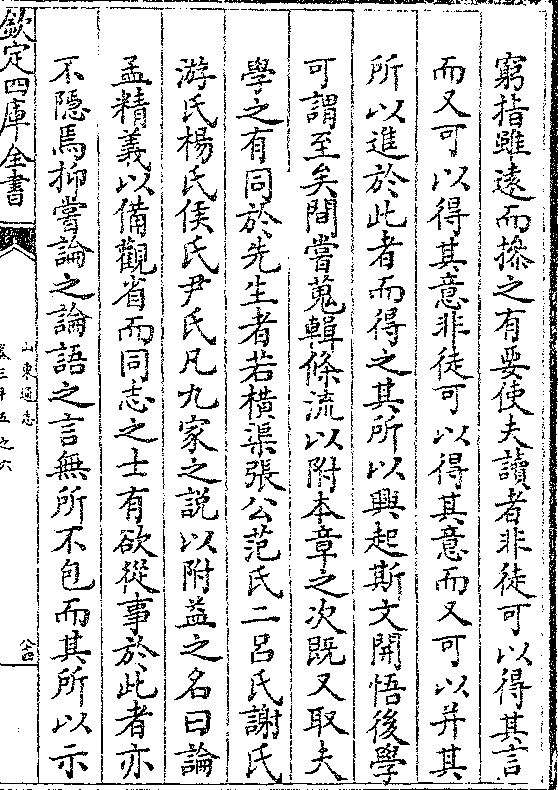 窮指雖遠而操之有要使夫讀者非徒可以得其言
而又可以得其意非徒可以得其意而又可以并其
所以進於此者而得之其所以興起斯文開悟後學
可謂至矣間嘗蒐輯條流以附本章之次既又取夫
學之有同於先生者若橫渠張公范氏二呂氏謝氏
游氏楊氏侯氏尹氏凡九家之説以附益之名曰論
孟精義以備觀省而同志之士有欲從事於此者亦
不隱焉抑嘗論之論語之言無所不包而其所以示
欽定四庫全書
山東通志
卷三十五之六